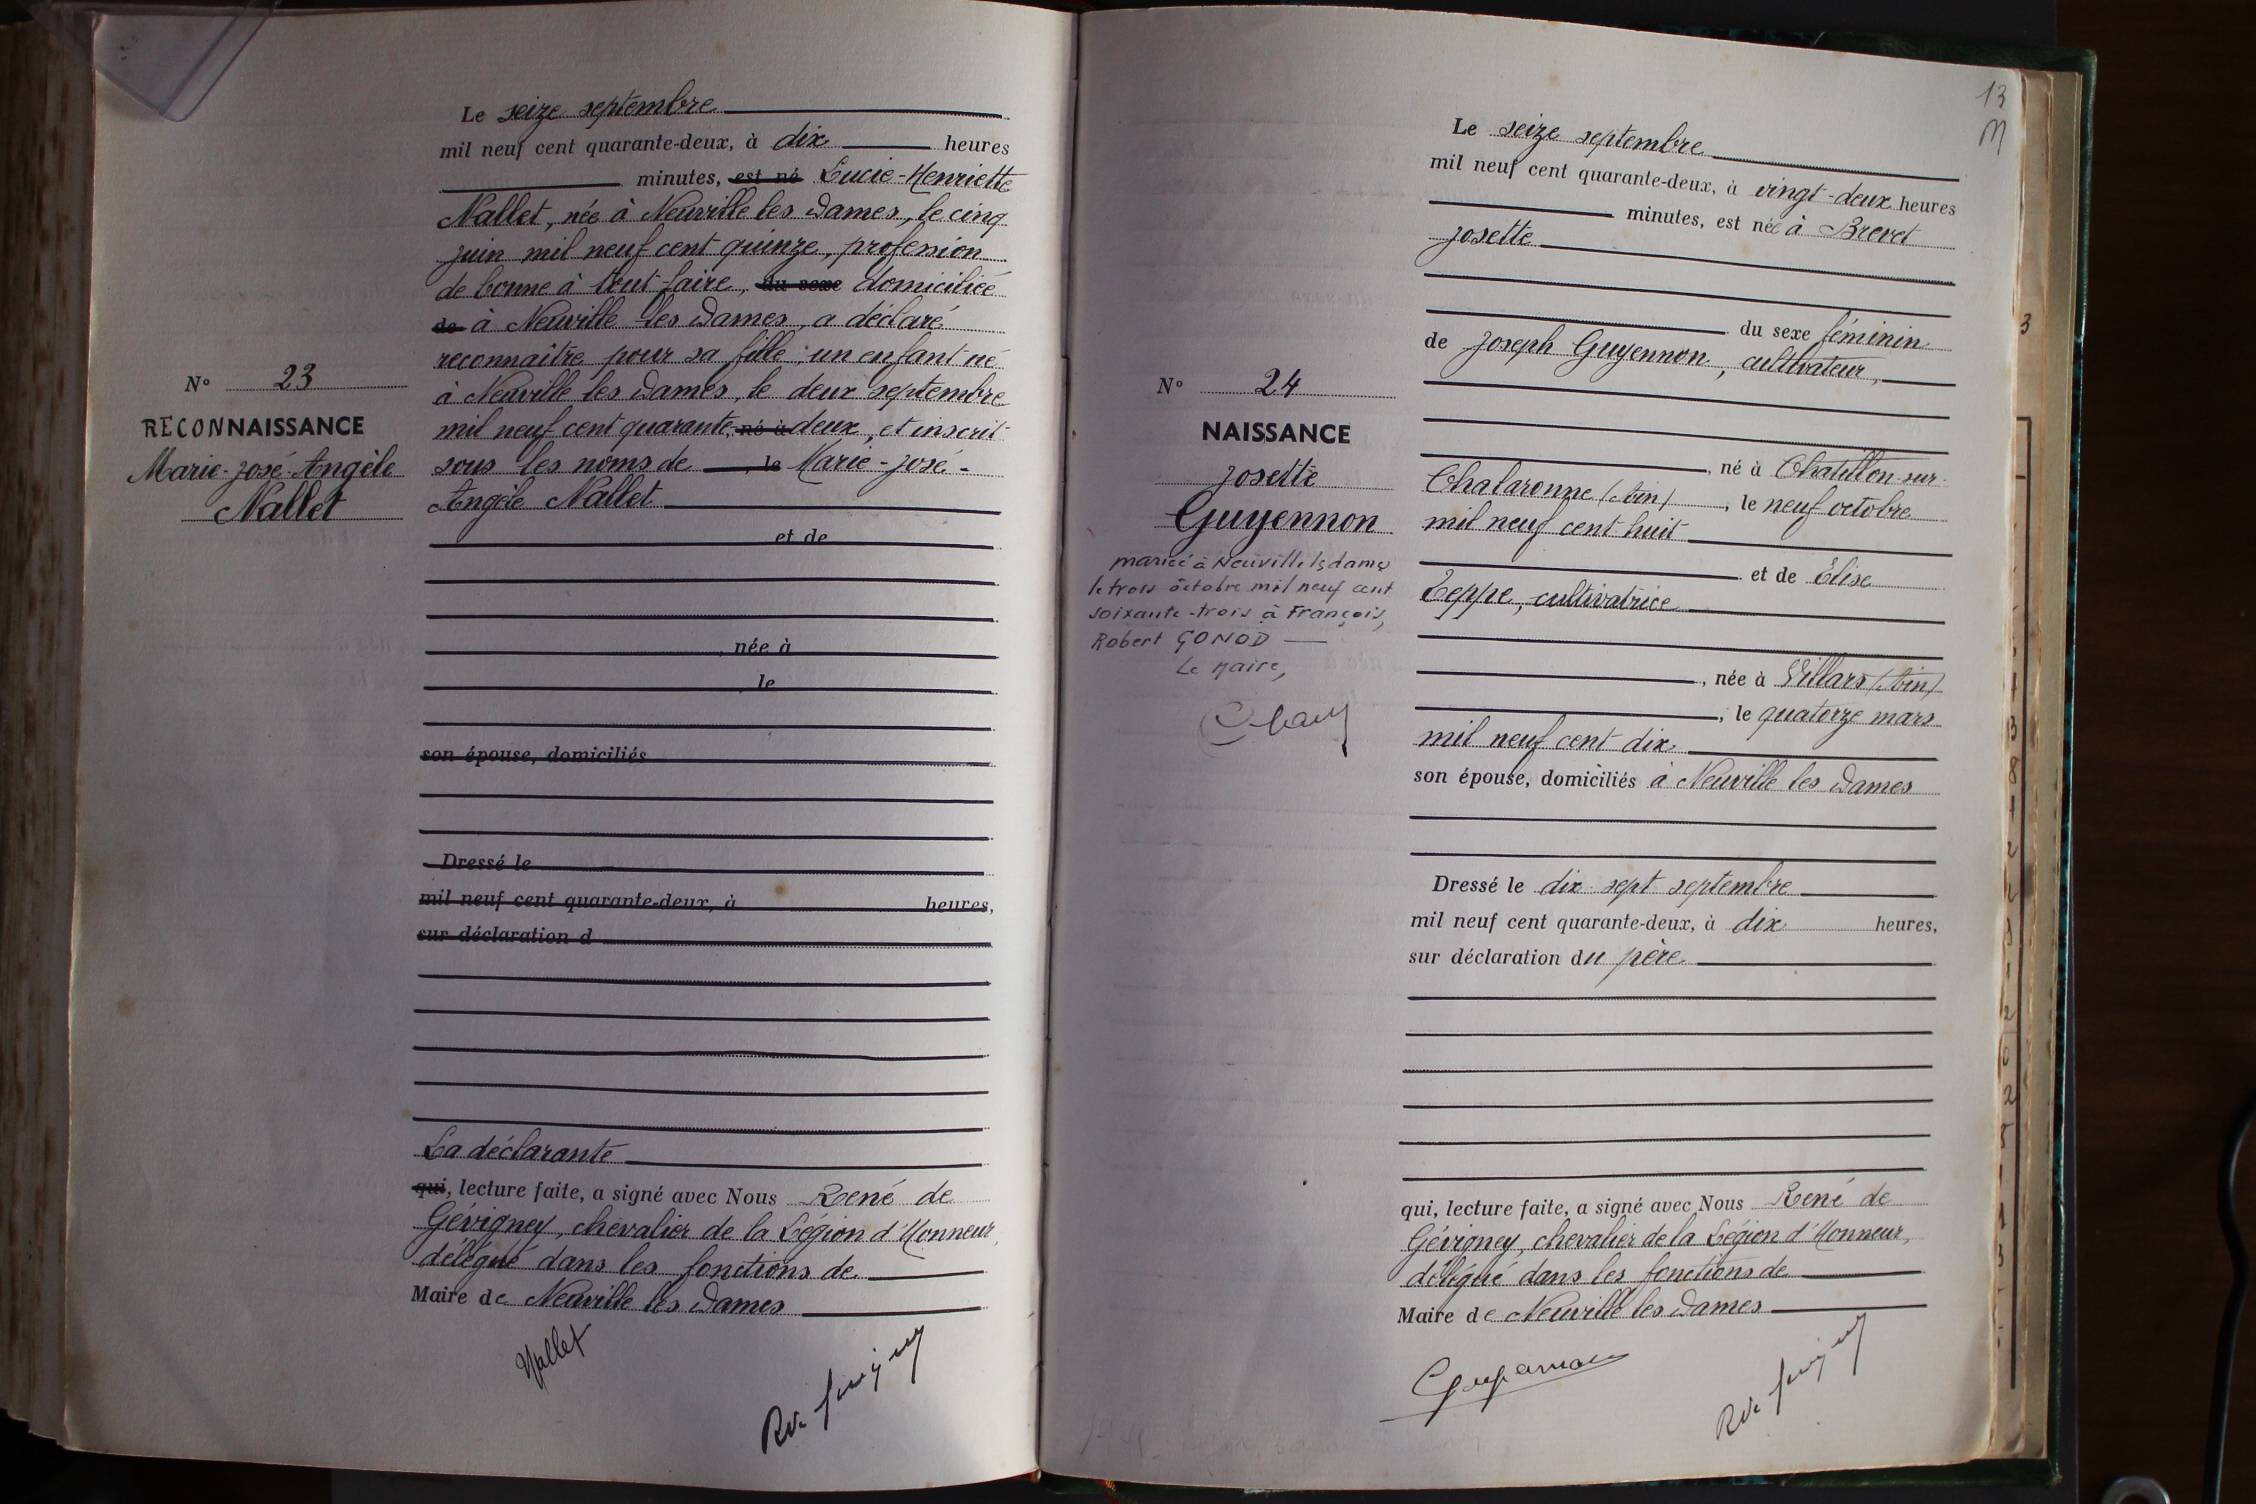 Le seize septembre
mil neuf cent quarante-deux, à dix heures
minutes, est né Lucie-Henriette
Nallet, née à Neuville les Dames, le cinq
juin mil neuf cent quinze, profession
de bonne à tout faire, du sexe domiciliée
de à Neuville les Dames, a déclaré
reconnaître pour sa fille, un enfant né
à Neuville les Dames, le deux septembre
mil neuf cent quarante, né à deux, et inscrit
sous les noms de , le Marie-José-
Angèle Nallet
et de
née à
le
son épouse, domiciliés
Dressé le
mil neuf cent quarante-deux, à heures,
sur déclaration d
La déclarante
qui, lecture faite, a signé avec Nous René de
Gévigney, chevalier de la Légion d'Honneur,
délégué dans les fonctions de
Maire de Neuville les Dames
Nallet
N° 23
RECONNAISSANCE
Marie-José-Angèle
Nallet
13
Le seize septembre
mil neuf cent quarante-deux, à vingt-deux heures
minutes, est née à Brevet
Josette
du sexe féminin
de Joseph Guyennon, cultivateur,
, né à Chatillon-sur-
Chalaronne (Ain) , le neuf octobre
mil neuf cent huit
et de Elise
Teppe, cultivatrice
, née à Villars (Ain)
, le quatorze mars
mil neuf cent dix
son épouse, domiciliés à Neuville les Dames
Dressé le dix sept septembre
mil neuf cent quarante-deux, à dix heures,
sur déclaration du père
qui, lecture faite, a signé avec Nous René de
Gévigney, chevalier de la Légion d'Honneur,
délégué dans les fonctions de
Maire de Neuville les Dames
N° 24
NAISSANCE
Josette
Guyennon
mariée à Neuville ls dames
le trois octobre mil neuf cent
soixante-trois à François,
Robert GONOD
Le Maire,